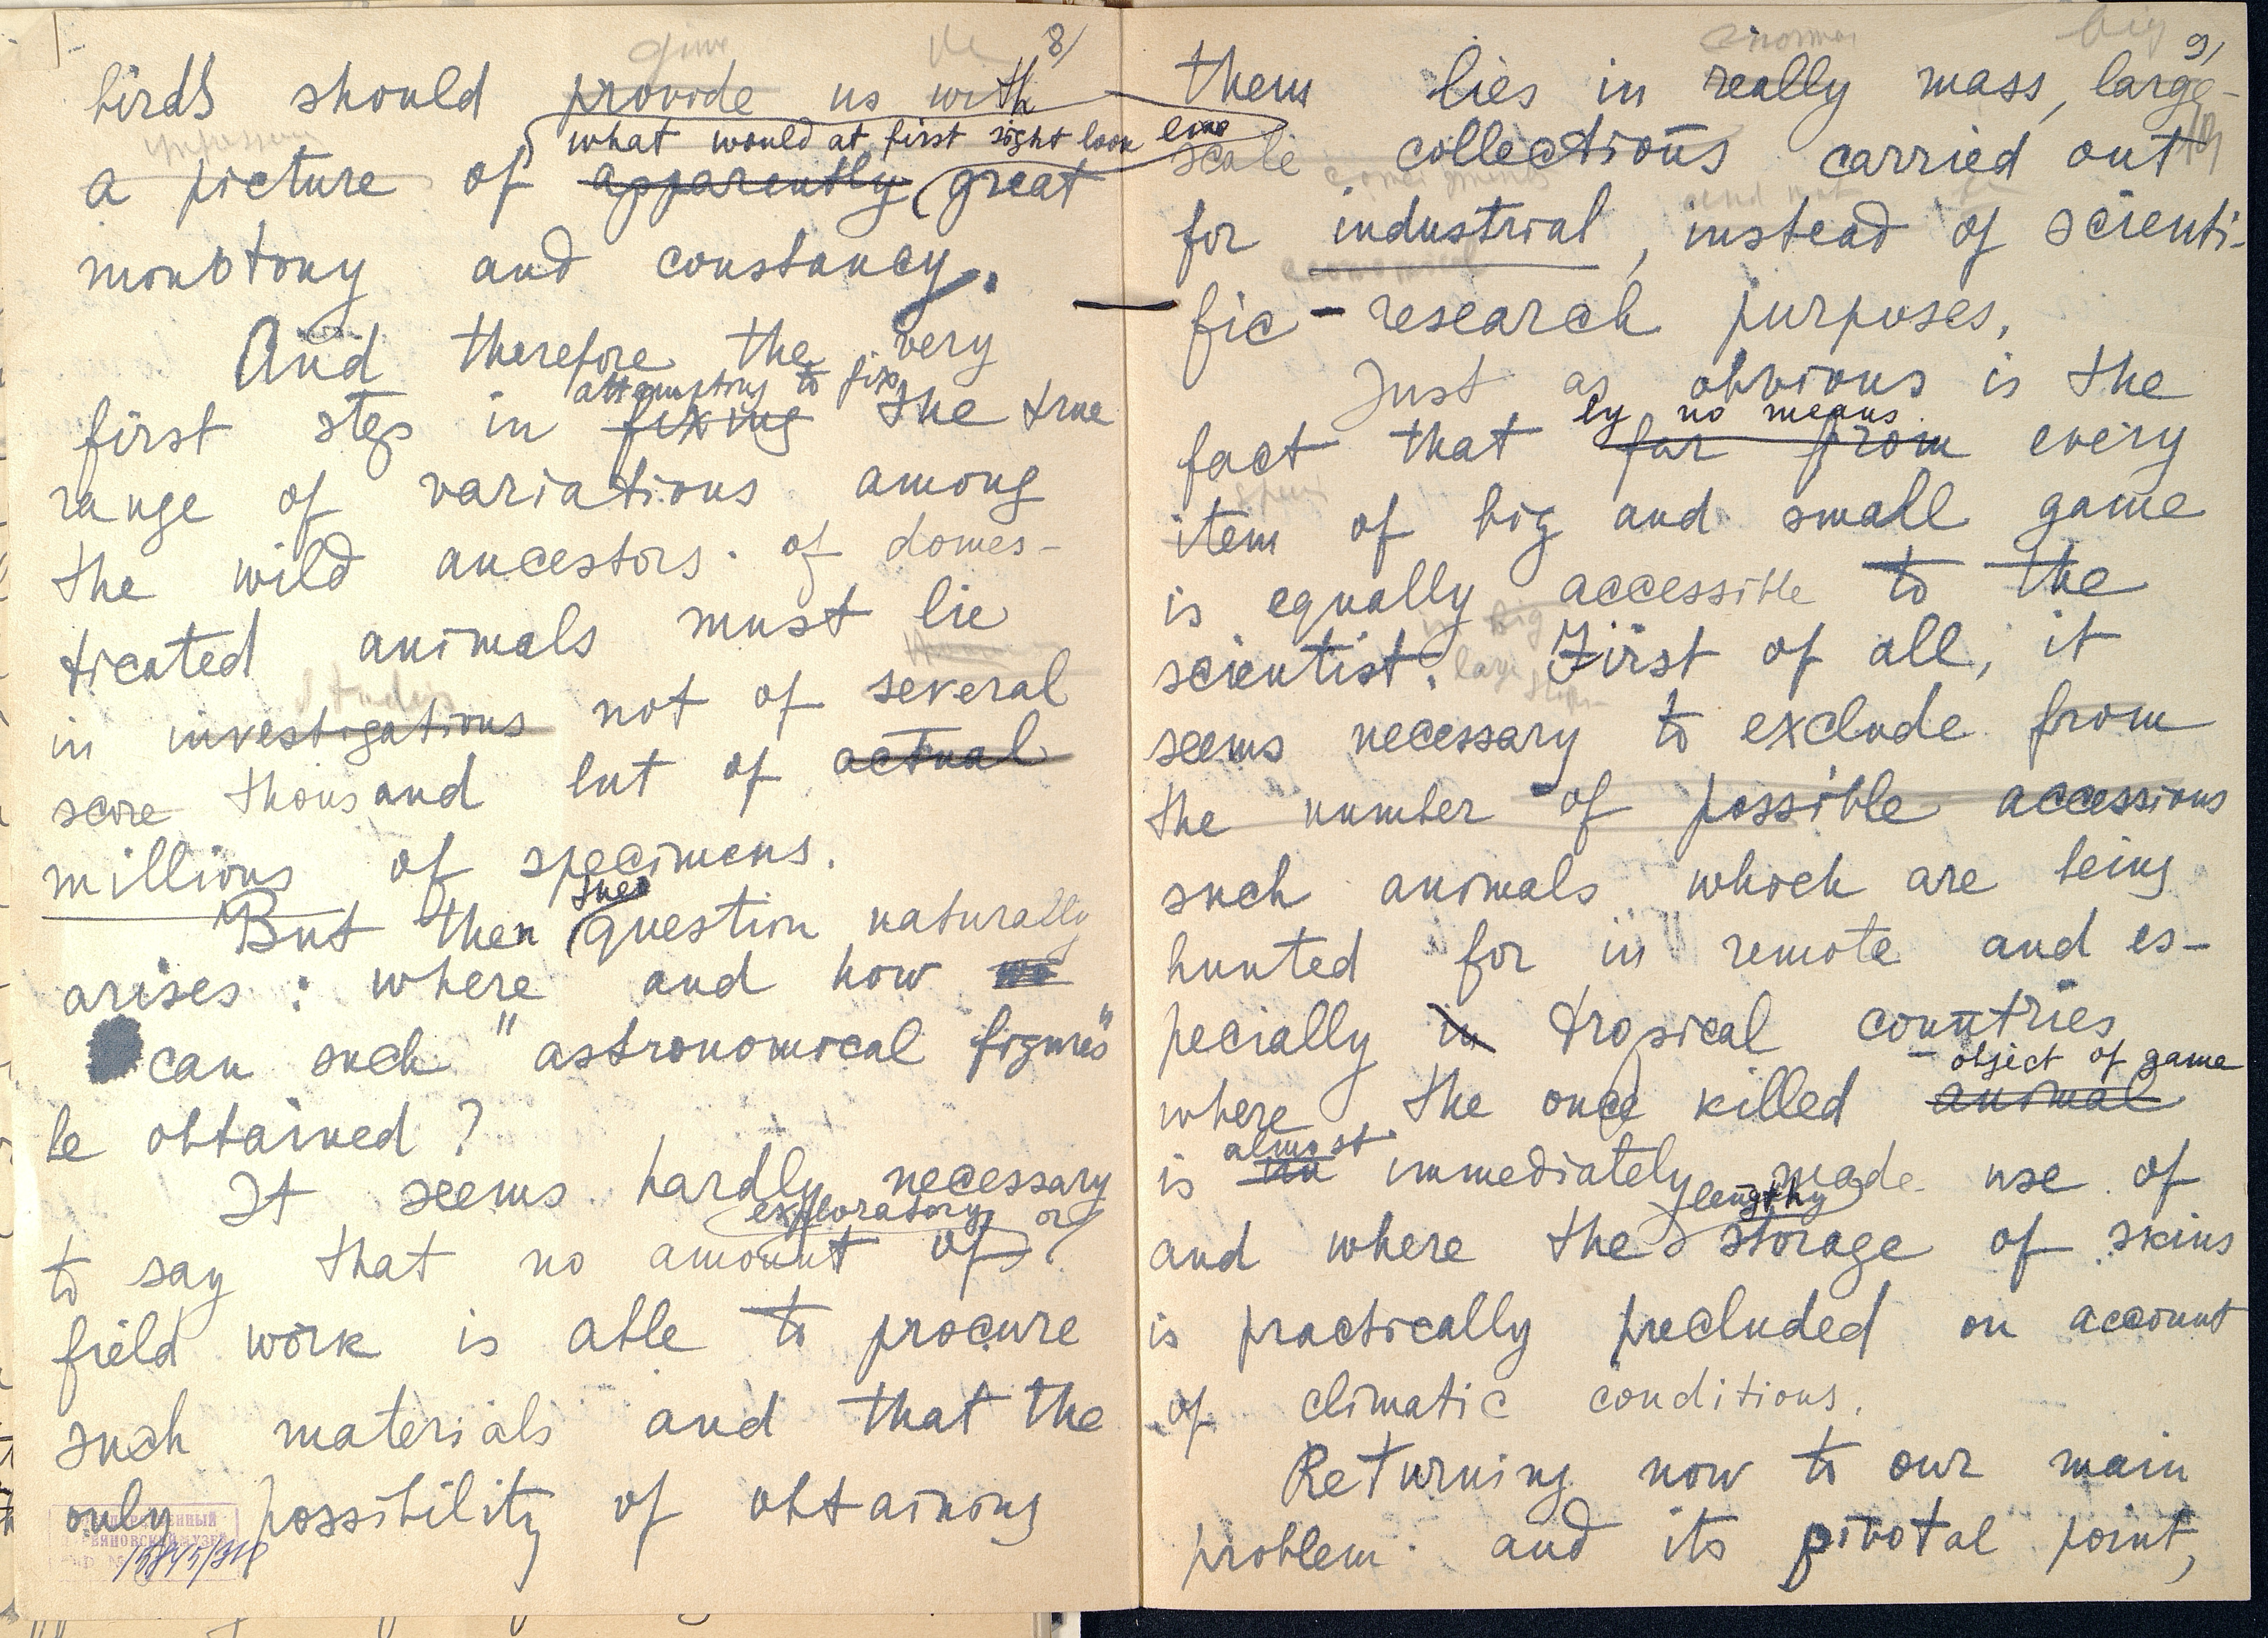 8/
give
birds should provide us with
what would at first sight look like
a picture of apparently great
monotony and constancy.
And therefore the very
attempting to fix
first step in fixing the true
range of variations among
the wild ancestors of domes-
ticated animals must lie
studies
in investigations not of several
score thousand but of actual
millions of specimens.
But then the question naturally
arises: where and how we
can such "astronomical figures"
be obtained?
It seems hardly necessary
exploratory or
to say that no amount of
field work is able to procure
such materials and that the
only possibility of obtaining
15845/918
9/
big
them lies in really mass, large-
scale collections carried out
and not
for industrial, instead of scienti-
economical
fic-research purposes.
Just as obvious is the
by no means
fact that far from every
item of big and small game
is equally accessible to the
scientist. First of all, it
seems necessary to exclude from
the number of possible accessions
such animals which are being
hunted for in remote and es-
pecially in tropical countries
object of game
where the once killed animal
almost
is immediately made use of
lengthy
and where the storage of skins
is practically precluded on account
of climatic conditions.
Returning now to our main
problem and its pivotal point,